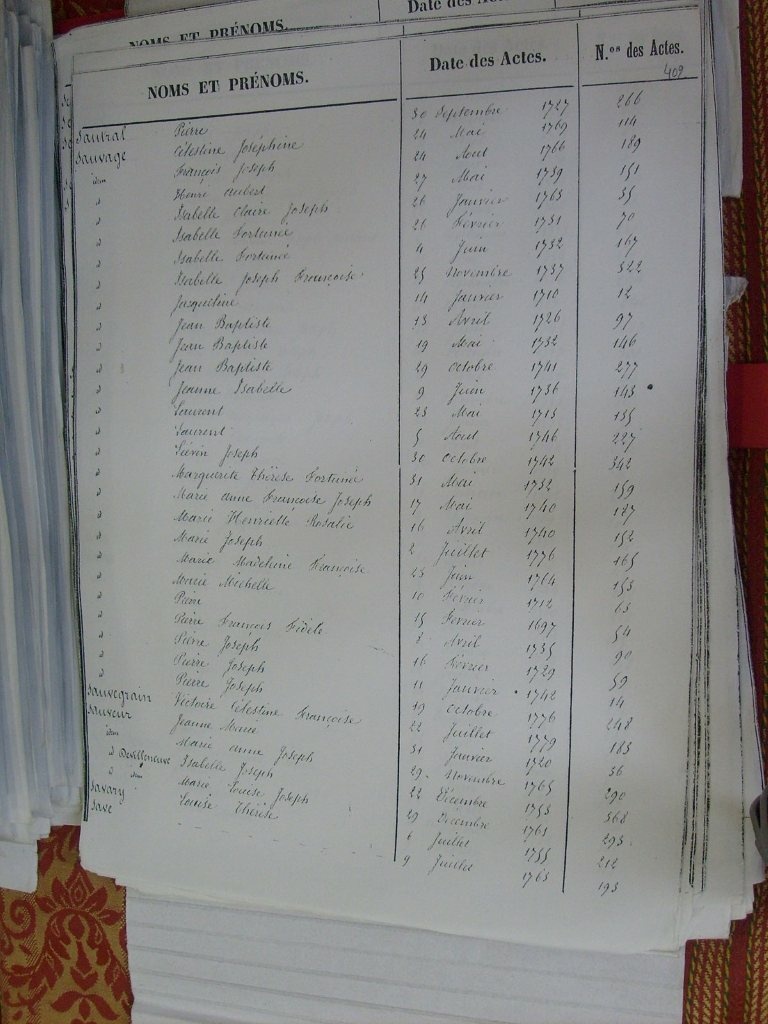 NOMS ET PRÉNOMS.
Date des Actes.
N.os des Actes.
409
Sautral Pierre
Sauvage Célestine Joséphine
idem François Joseph
" Henri Aubert
" Isabelle Claire Joseph
" Isabelle Fortunée
" Isabelle Fortunée
" Isabelle Joseph Françoise
" Jacqueline
" Jean Baptiste
" Jean Baptiste
" Jean Baptiste
" Jeanne Isabelle
" Laurent
" Laurent
" Liévin Joseph
" Marguerite Thérèse Fortunée
" Marie anne Françoise Joseph
" Marie Henriette Rosalie
" Marie Joseph
" Marie Madeleine Françoise
" Marie Michelle
" Pierre
" Pierre François Fidèle
" Pierre Joseph
" Pierre Joseph
" Pierre Joseph
Sauvegrain Victoire Célestine Françoise
Sauveur Jeanne Marie
idem Marie anne Joseph
" Devilleneuve Isabelle Joseph
" idem Marie Louise Joseph
Savary Louise Thérèse
Save
30 Septembre 1727 266
24 Mai 1769 114
24 Aout 1766 189
27 Mai 1739 151
26 Janvier 1763 35
26 Février 1731 70
4 Juin 1732 167
25 Novembre 1737 322
14 Janvier 1710 12
13 Avril 1726 97
19 Mai 1732 146
29 Octobre 1741 277
9 Juin 1736 143
23 Mai 1713 135
5 Aout 1746 227
30 Octobre 1742 342
31 Mai 1732 159
17 Mai 1740 187
16 Avril 1740 152
2 Juillet 1776 165
23 Juin 1764 153
10 Fevrier 1712 63
15 Fevrier 1697 54
2 Avril 1735 90
16 Février 1729 59
11 Janvier 1742 14
19 Octobre 1776 248
22 Juillet 1779 183
31 Janvier 1720 36
29 Novembre 1765 290
22 Décembre 1753 368
29 Décembre 1761 293
6 Juillet 1755 212
9 Juillet 1763 193